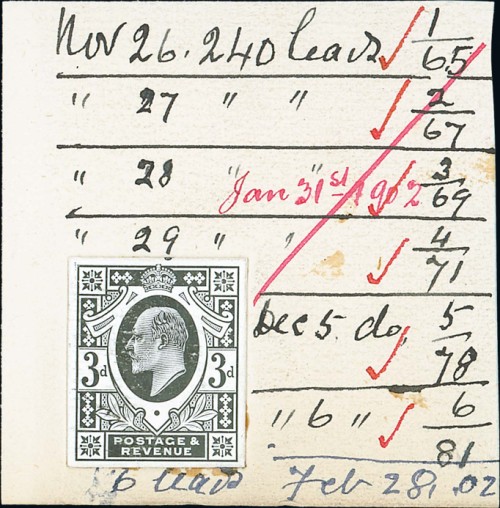 Nov 26. 240 leads 1/65
" 27 " " 2/67
" 28 " " 3/69
Jan 31st 1902
" 29 " " 4/71
Dec 5. do, 5/78
" 6 " 6/81
3d 3d
POSTAGE &
REVENUE
6 leads Feb 28, .02